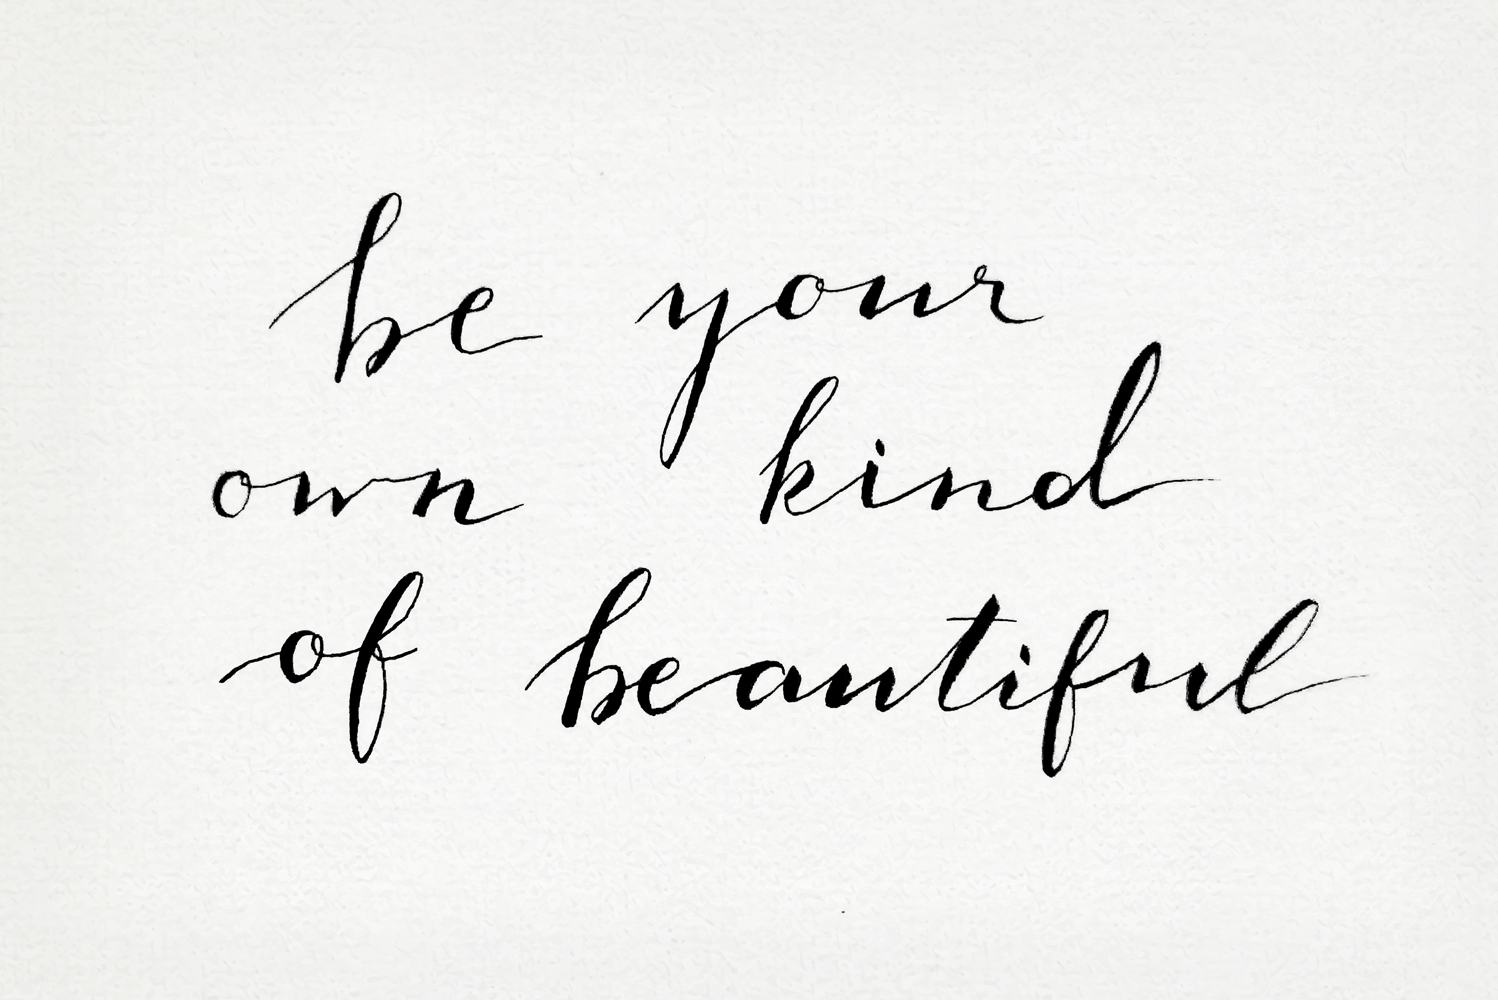 be your
own kind
of beautiful